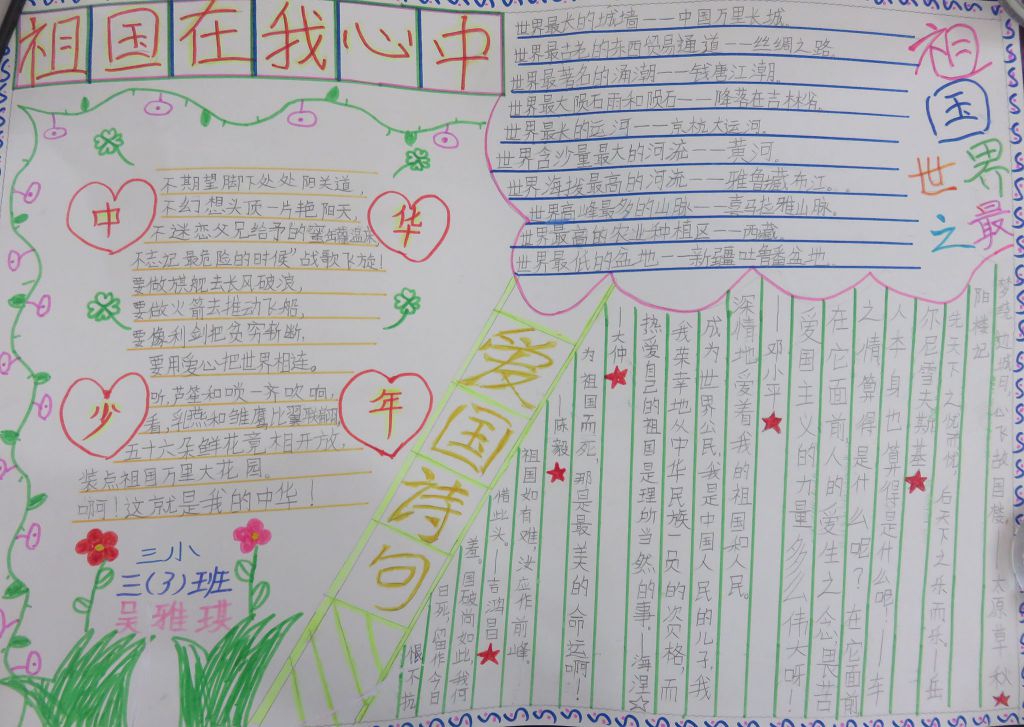 祖国在我心中
世界最大的城墙——中国万里长城。
世界最古老的东西贸易通道——丝绸之路。
世界最著名的涌潮——钱唐江潮。
世界最大陨石雨和陨石——降落在吉林省。
世界最长的运河——京杭大运河。
世界含沙量最大的河流——黄河。
世界海拨最高的河流——雅鲁藏布江。
世界高峰最多的山脉——喜马拉雅山脉。
世界最高的农业种植区——西藏
世界最低的盆地——新疆吐鲁番盆地。
祖国世界之最
中华少年
不期望脚下处处阳关道，
不幻想头顶一片艳阳天，
不迷恋父兄给予的蜜罐温床，
不忘记"最危险的时候"战歌飞旋！
要做旗舰去长风破浪，
要做火箭去推动飞船，
要像利剑把负穷斩断，
要用爱心把世界相连。
听，芦笙和唢一齐吹响，
看，乳燕和雏鹰比翼联翩，
五十六朵鲜花竞相开放，
装点祖国万里大花园。
啊！这就是我的中华！
三小
三(3)班
吴雅琪
爱国诗句
梦绕边城月，心飞故国楼。太原草秋
阳楼记
先天下之忧而忧，后天下之乐而乐。——岳
尔尼雪夫斯基
人本身也算得是什么呢！——车
之情算得是什么呢？在它面前
在它面前，人的爱生之念，畏苦
爱国主义的力量多么伟大呀！
——邓小平
深情地爱着我的祖国和人民。
成为世界公民，我是中国人民的儿子，我
我荣幸地从中华民族一员的资格，而
热爱自己的祖国是理所当然的事。——海涅
——大仲
为祖国而死，那是最美的命运啊！
——陈毅
祖国如有难，汝应作前峰。
借此头。——吉鸿昌
羞。国破尚如此，我何
日死，留作今日
恨不抗